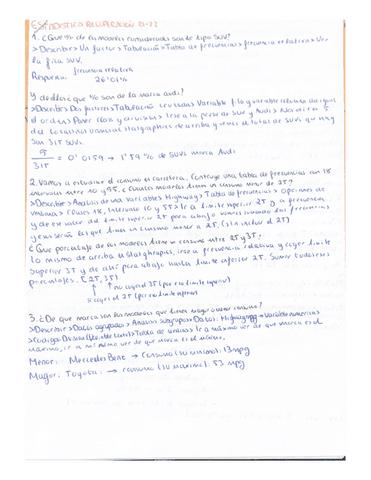 ESTADÍSTICA RECUPERACIÓN 21-22
1. ¿Qué % de los modelos considerados son de tipo SUV?
> Describir > Un factor > Tabulación > Tabla de frecuencias > frecuencia relativa > Ver
la fila SUV.
Respuesta: frecuencia relativa
26'01%
Y de ellos que % son de la marca audi?
> Describir > Dos factores > Tabulación cruzada > Variable fila y variable columna
el orden > Poner
total de SUVs que hay
son 315 SUV.
5/315 = 0'0159 → 1'59 % de SUVs marca Audi
2. Vamos a estudiar el consumo en carretera. Construye una tabla de frecuencias con 18
intervalos entre 10 y 55. ¿Cuántos modelos tienen un consumo menor de 25?
> Describir > Análisis de una variable > Highway > Tabla de frecuencias > Opciones de
ventana > Clases 18, Intervalo 10 y 55 > Ir a límite superior 25 y a frecuencia
y de ese valor del límite superior 25 para abajo vamos sumando las frecuencias
y esas serán las que tienen un consumo menor a 25. (sin incluir el 25)
¿Qué porcentaje de los modelos tiene un consumo entre 25 y 35?
lo mismo de arriba en Statgraphics, irse a frecuencia relativa y coger límite
superior 35 y de ahí para abajo hasta límite inferior 25. Sumar todos esos
porcentajes. [25, 35)
no coger el 35 (por ser límite superior)
si coger el 25 (por ser límite inferior)
3. ¿De qué marca son los modelos que tienen mayor o menor consumo?
> Describir > Datos agrupados > Análisis subgrupos > Datos: Highwaympg > Variable numérica
> Ir a máximo ver de que marca es el
máximo, ir a mínimo ver de que marca es el mínimo.
Menor: Mercedes Benz → consumo (su mínimo): 13 mpg
Mayor: Toyota: → consumo (su máximo): 53 mpg